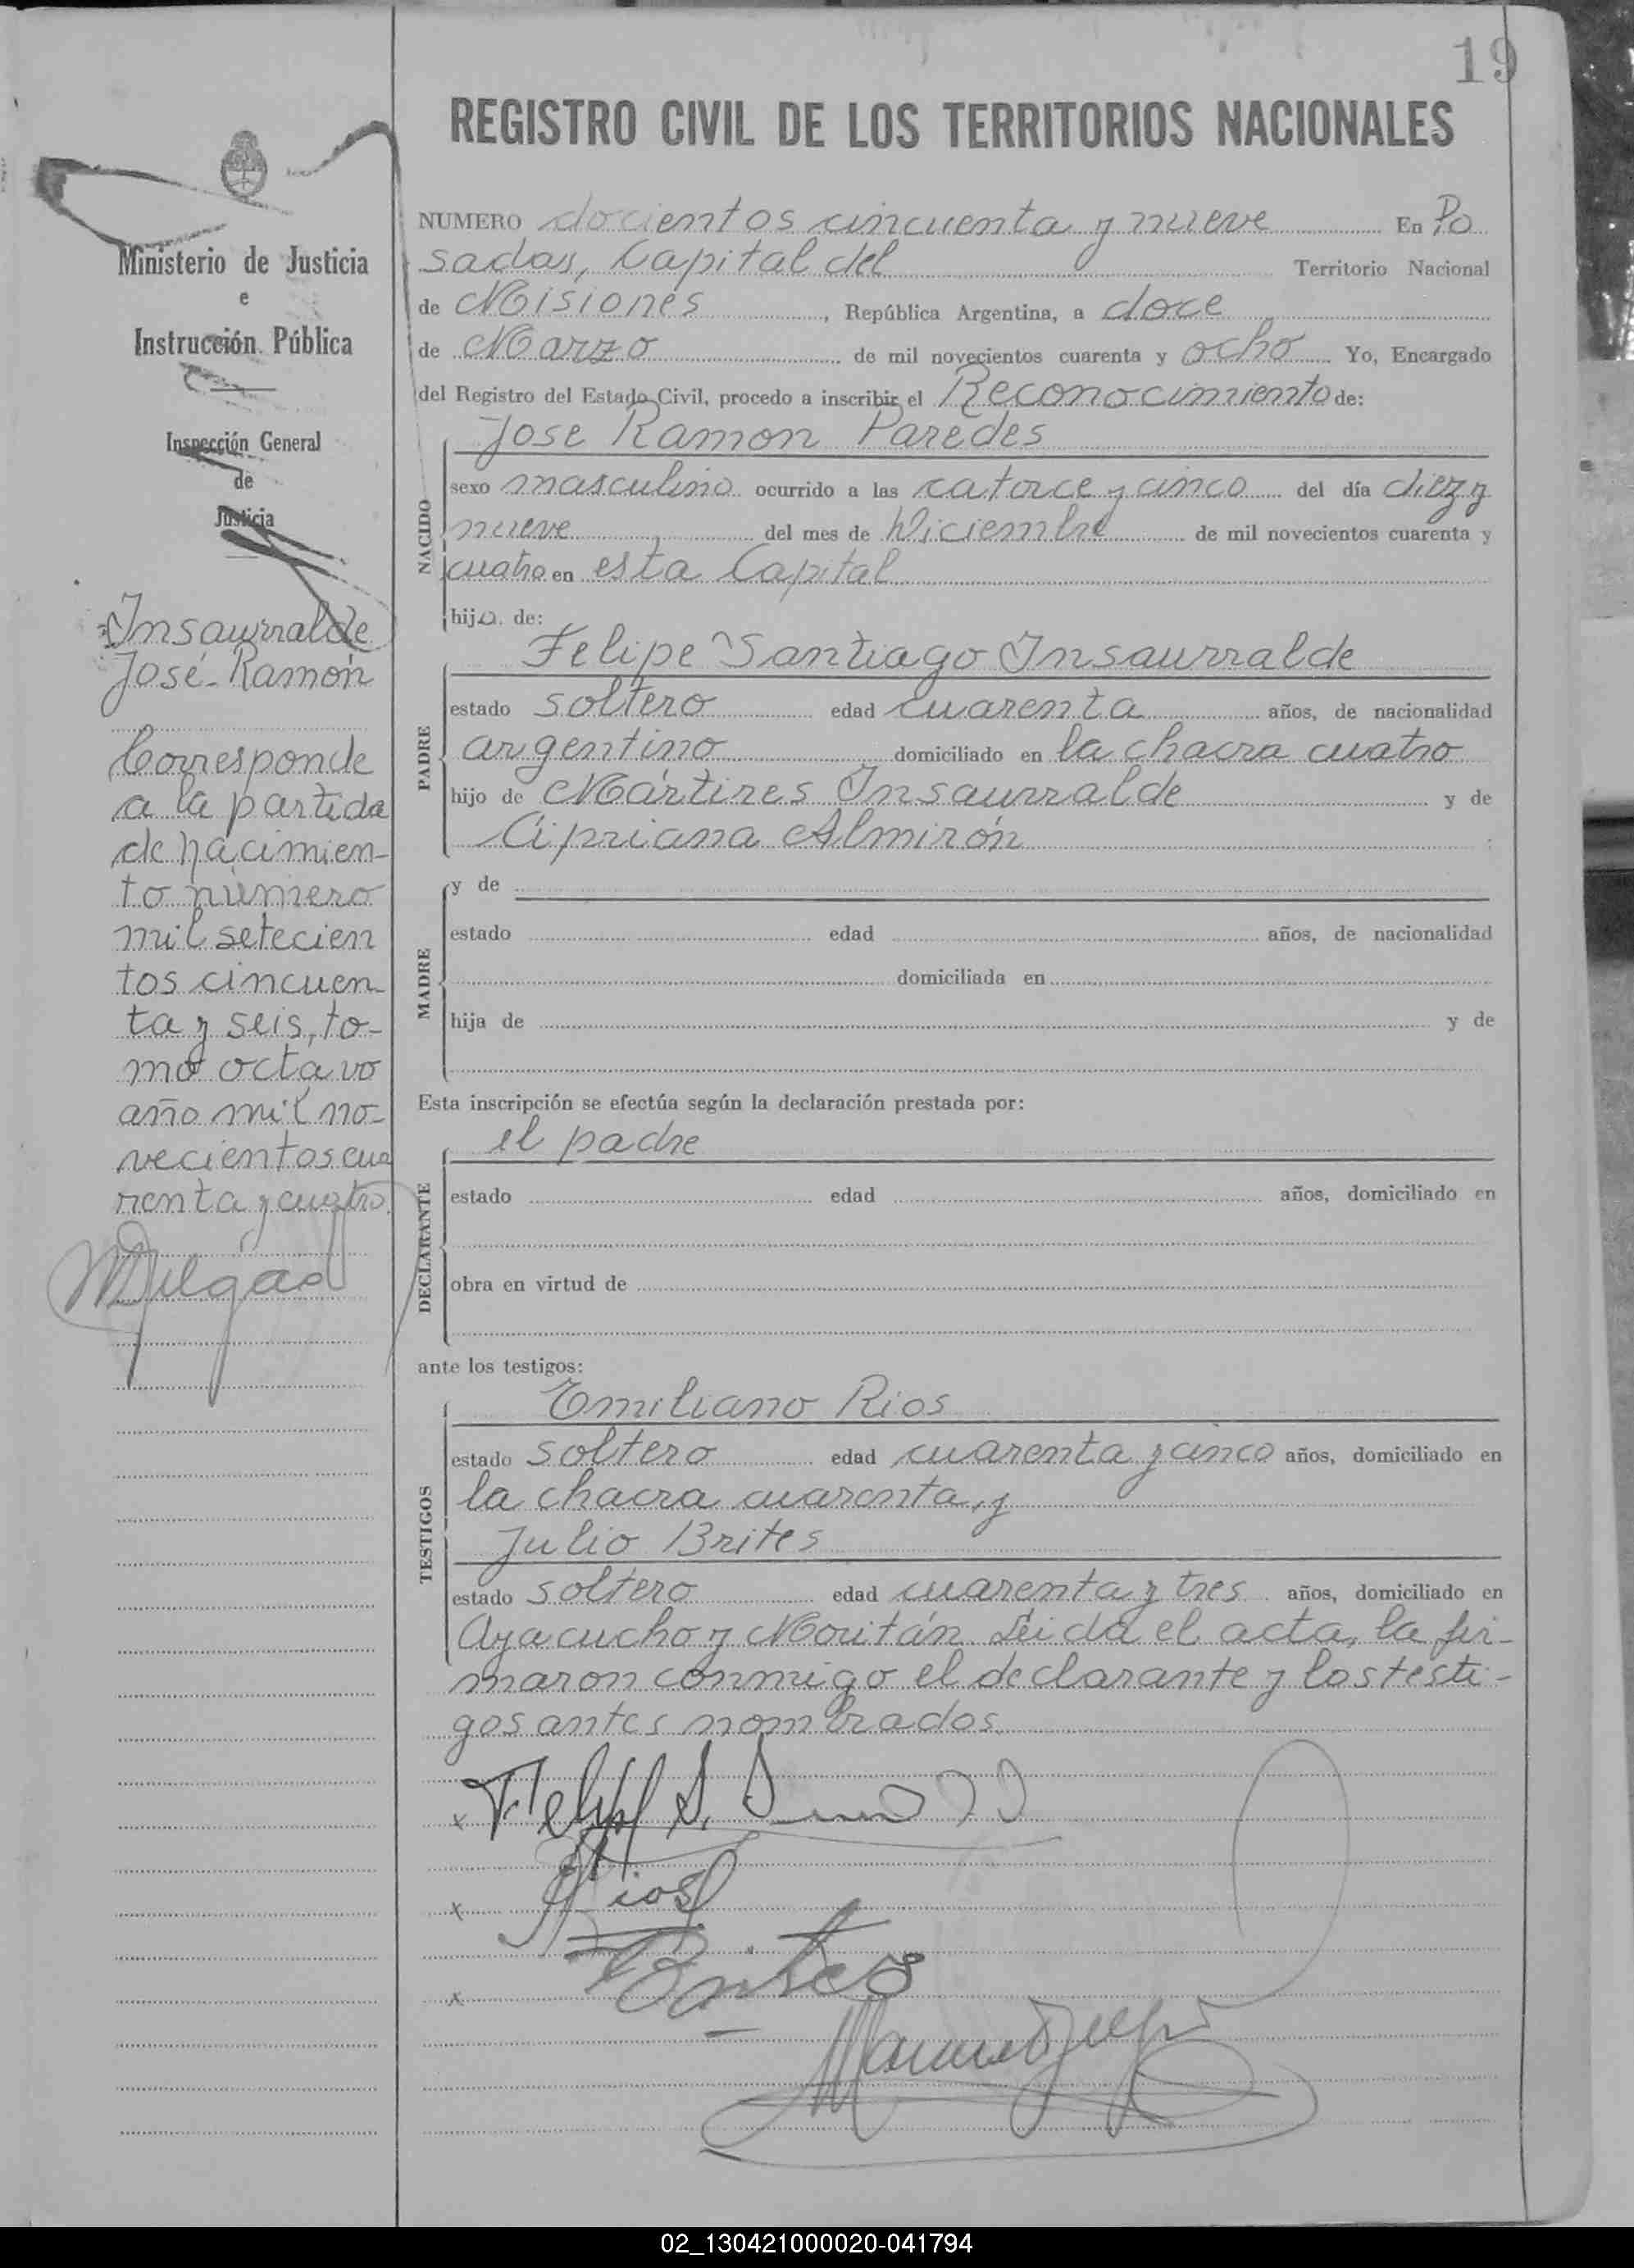 19
REGISTRO CIVIL DE LOS TERRITORIOS NACIONALES
Ministerio de Justicia
e
Instrucción Pública
Inspección General
de
Justicia
Insaurralde
José Ramón
Corresponde
a la partida
de nacimien-
to número
mil setecien
tos cincuen-
ta y seis, to-
mo octavo
año mil no-
vecientos cua
renta y cuatro.
NUMERO docientos cincuenta y nueve En Po
sadas, Capital del Territorio Nacional
de Misiones, República Argentina, a doce
de Marzo de mil novecientos cuarenta y ocho Yo, Encargado
del Registro del Estado Civil, procedo a inscribir el Reconocimiento de:
NACIDO
Jose Ramon Paredes
sexo masculino ocurrido a las catorce y cinco del día diez y
nueve del mes de Diciembre de mil novecientos cuarenta y
cuatro en esta Capital
hijo de:
PADRE
Felipe Santiago Insaurralde
estado soltero edad cuarenta años, de nacionalidad
argentino domiciliado en la chacra cuatro
hijo de Mártires Insaurralde y de
Cipriana Almirón
MADRE
y de
estado edad años, de nacionalidad
domiciliada en
hija de y de
Esta inscripción se efectúa según la declaración prestada por:
DECLARANTE
el padre
estado edad años, domiciliado en
obra en virtud de
ante los testigos:
TESTIGOS
Emiliano Rios
estado soltero edad cuarenta y cinco años, domiciliado en
la chacra cuarenta, y
Julio Brites
estado soltero edad cuarenta y tres años, domiciliado en
Ayacucho y Moritán. Leida el acta, la fir-
maron conmigo el declarante y los testi-
gos antes nombrados.
x Felipe S.
x Rios
x Brites
Manuel
02_130421000020-041794